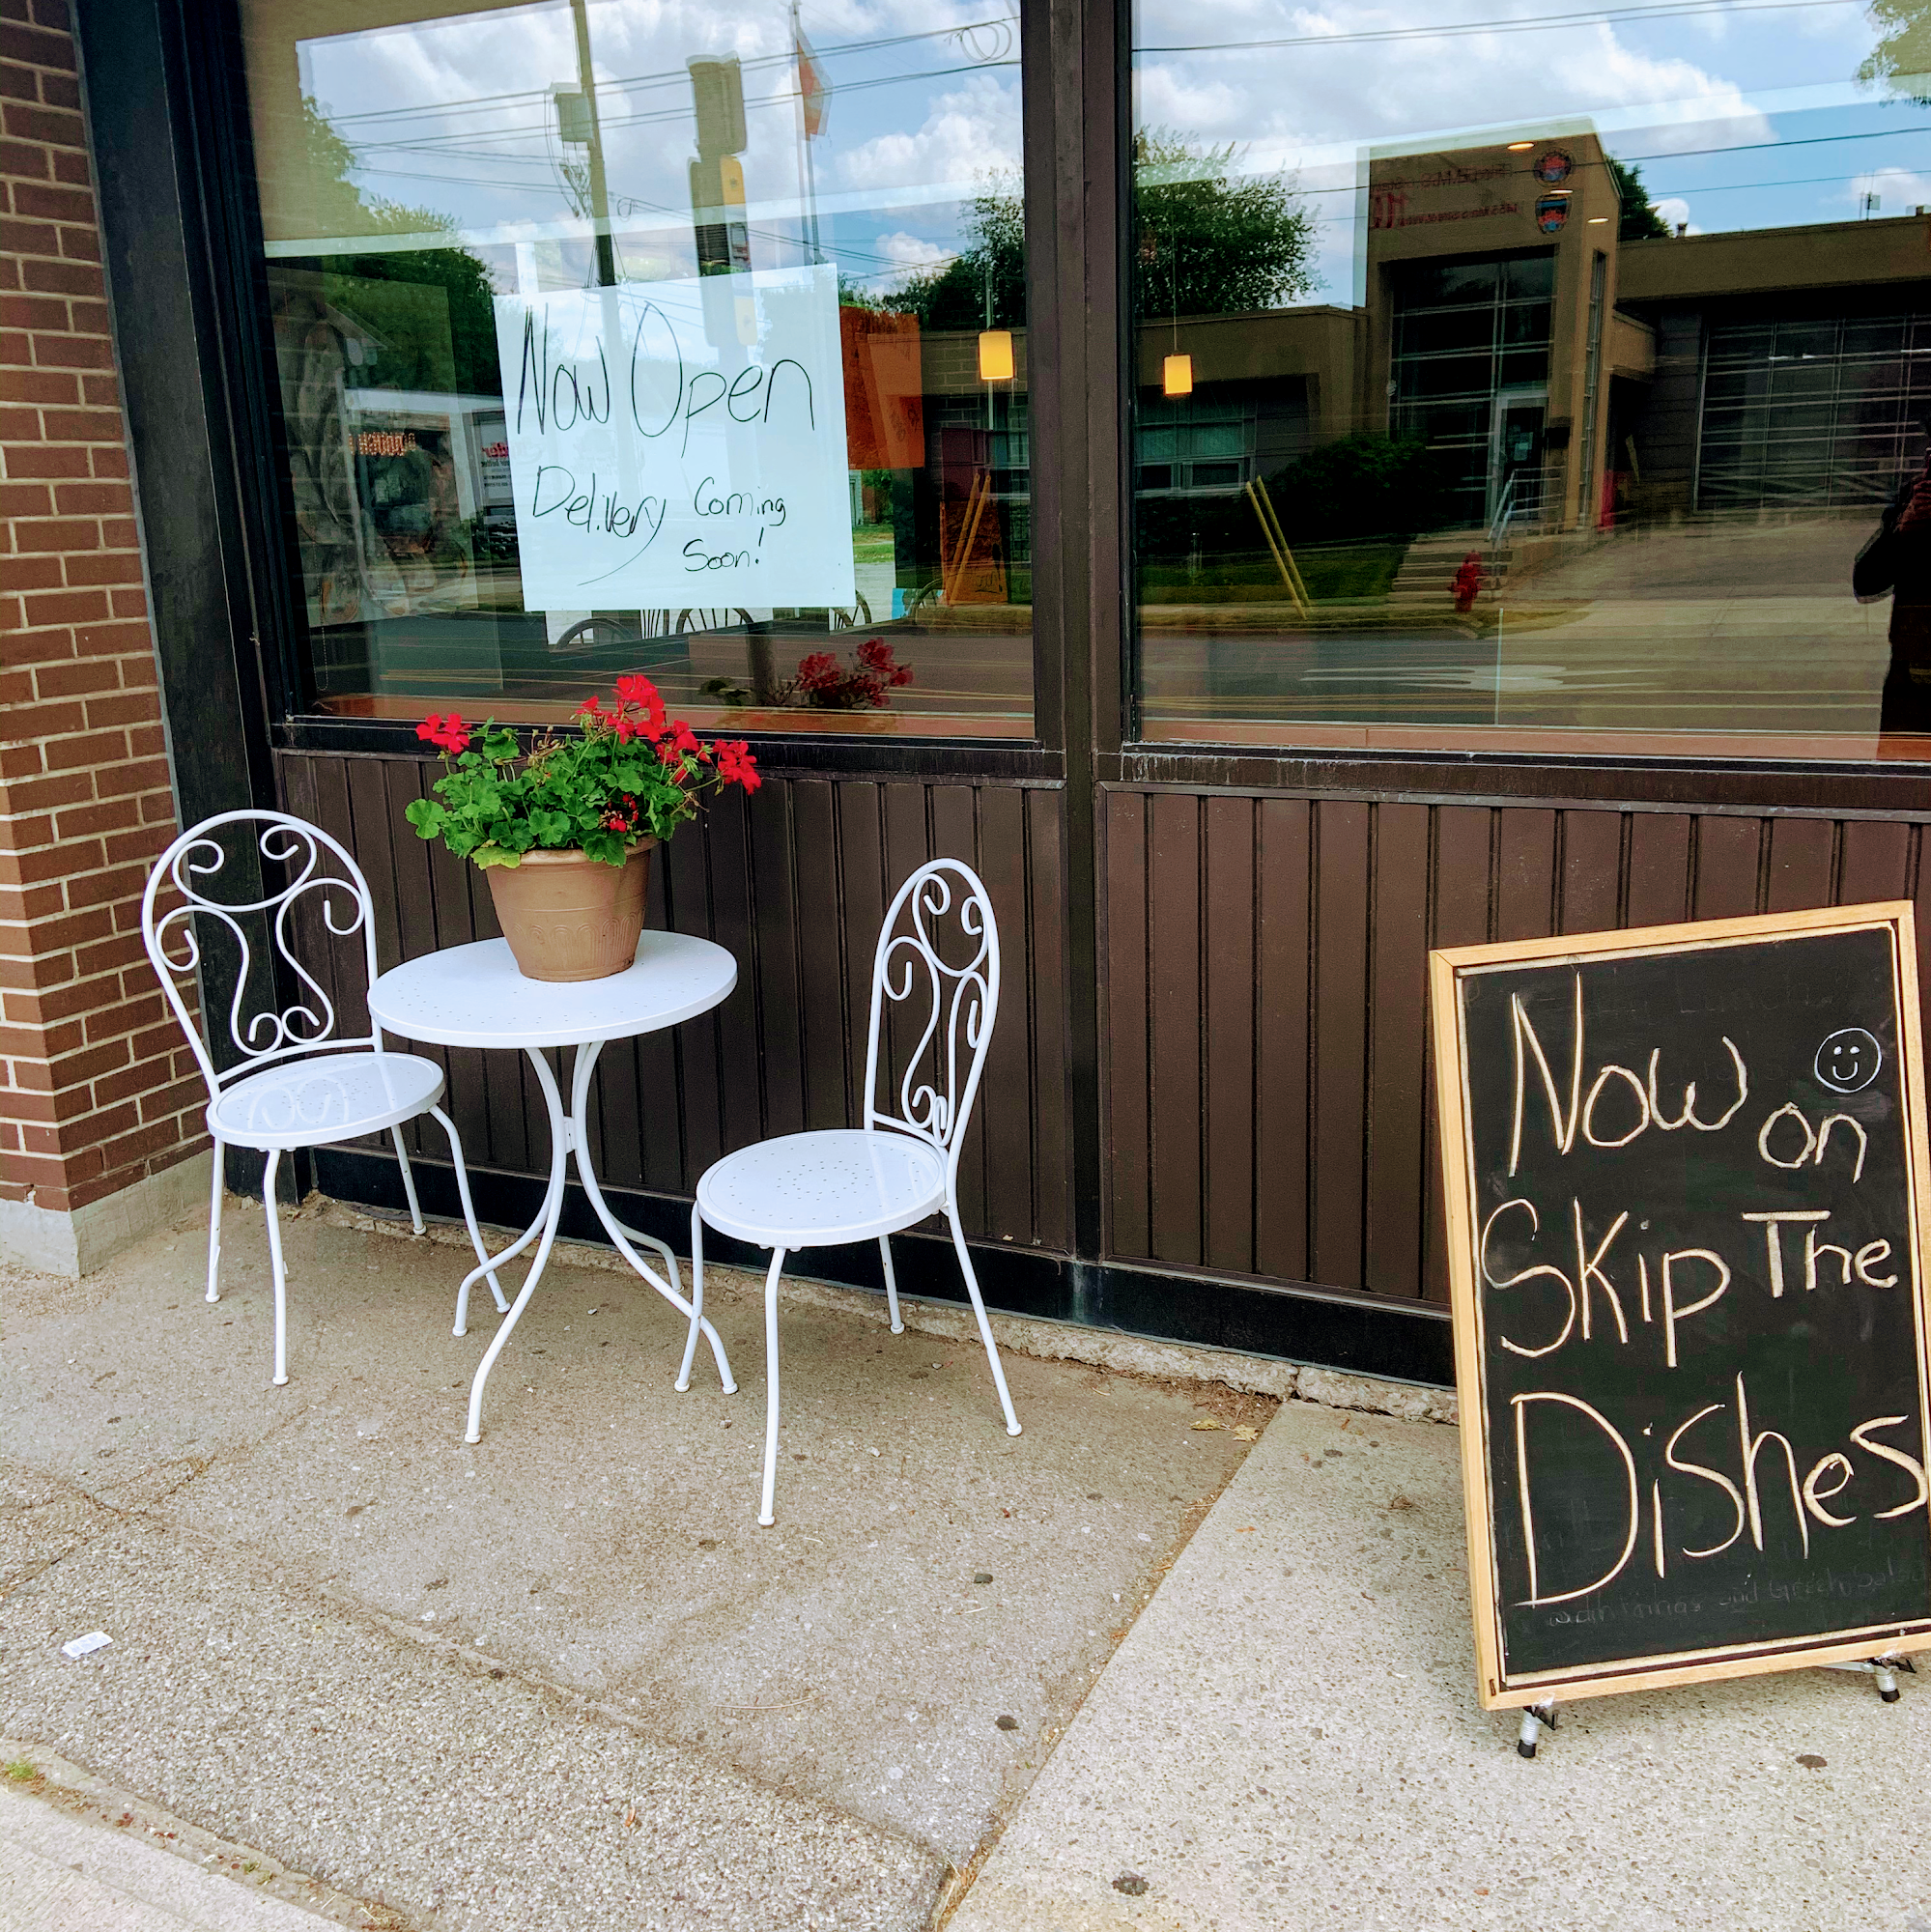 Now Open
Delivery Coming
Soon!
Now on
Skip The
Dishes